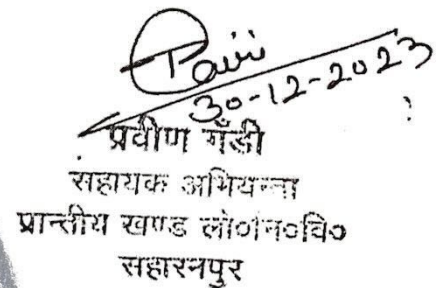 30-12-2023
प्रवीण गँडी
सहायक अभियन्ता
प्रान्तीय खण्ड लो०नि०वि०
सहारनपुर